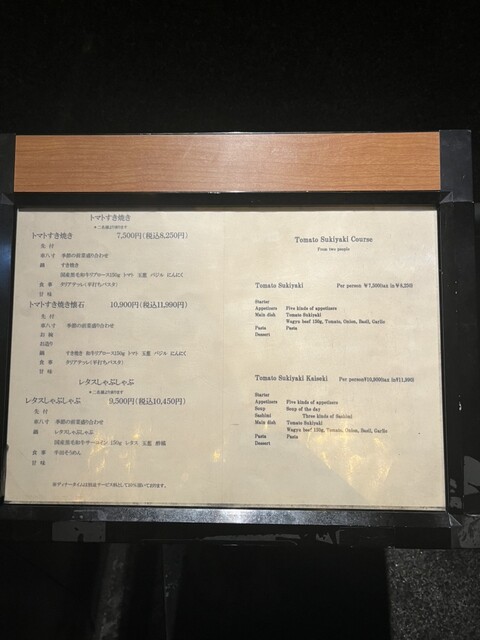 トマトすき焼き
*二名様より承ります
トマトすき焼き 7,500円(税込8,250円)
先 付
車八寸 季節の前菜盛り合わせ
鍋 すき焼き
国産黒毛和牛リブロース150g トマト 玉葱 バジル にんにく
食 事 タリアテッレ(平打ちパスタ)
甘 味
トマトすき焼き懐石 10,900円(税込11,990円)
先 付
車八寸 季節の前菜盛り合わせ
お 椀
お造り
鍋 すき焼き 和牛リブロース150g トマト 玉葱 バジル にんにく
食 事 タリアテッレ(平打ちパスタ)
甘 味
レタスしゃぶしゃぶ
*二名様より承ります
レタスしゃぶしゃぶ 9,500円(税込10,450円)
先 付
車八寸 季節の前菜盛り合わせ
鍋 レタスしゃぶしゃぶ
国産黒毛和牛サーロイン 150g レタス 玉葱
食 事 半田そうめん
甘 味
※ディナータイムは別途サービス料として10%頂いております。
Tomato Sukiyaki Course
From two people
Tomato Sukiyaki Per person ¥7,500tax in¥8,250)
Starter
Appetizers Five kinds of appetizers
Main dish Tomato Sukiyaki
Wagyu beef 150g, Tomato, Onion, Basil, Garlic
Pasta Pasta
Dessert
Tomato Sukiyaki Kaiseki Per person¥10,900tax in¥11,990)
Starter
Appetizers Five kinds of appetizers
Soup Soup of the day
Sashimi Three kinds of Sashimi
Main dish Tomato Sukiyaki
Wagyu beef 150g, Tomato, Onion, Basil, Garlic
Pasta Pasta
Dessert